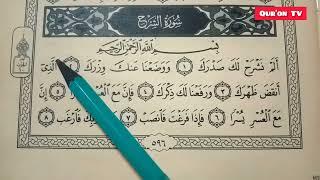 Qur'on TV
سُورَةُ الشَّرْحِ
بِسْمِ اللَّهِ الرَّحْمَٰنِ الرَّحِيمِ
أَلَمْ نَشْرَحْ لَكَ صَدْرَكَ ١ وَوَضَعْنَا عَنكَ وِزْرَكَ ٱلَّذِىٓ
أَنقَضَ ظَهْرَكَ ٣ وَرَفَعْنَا لَكَ ذِكْرَكَ ٤ فَإِنَّ مَعَ ٥ إِنَّ
مَعَ ٱلْعُسْرِ يُسْرًا ٦ فَإِذَا فَرَغْتَ فَٱنصَبْ ٧ فَٱرْغَب ٨
٥٩٦